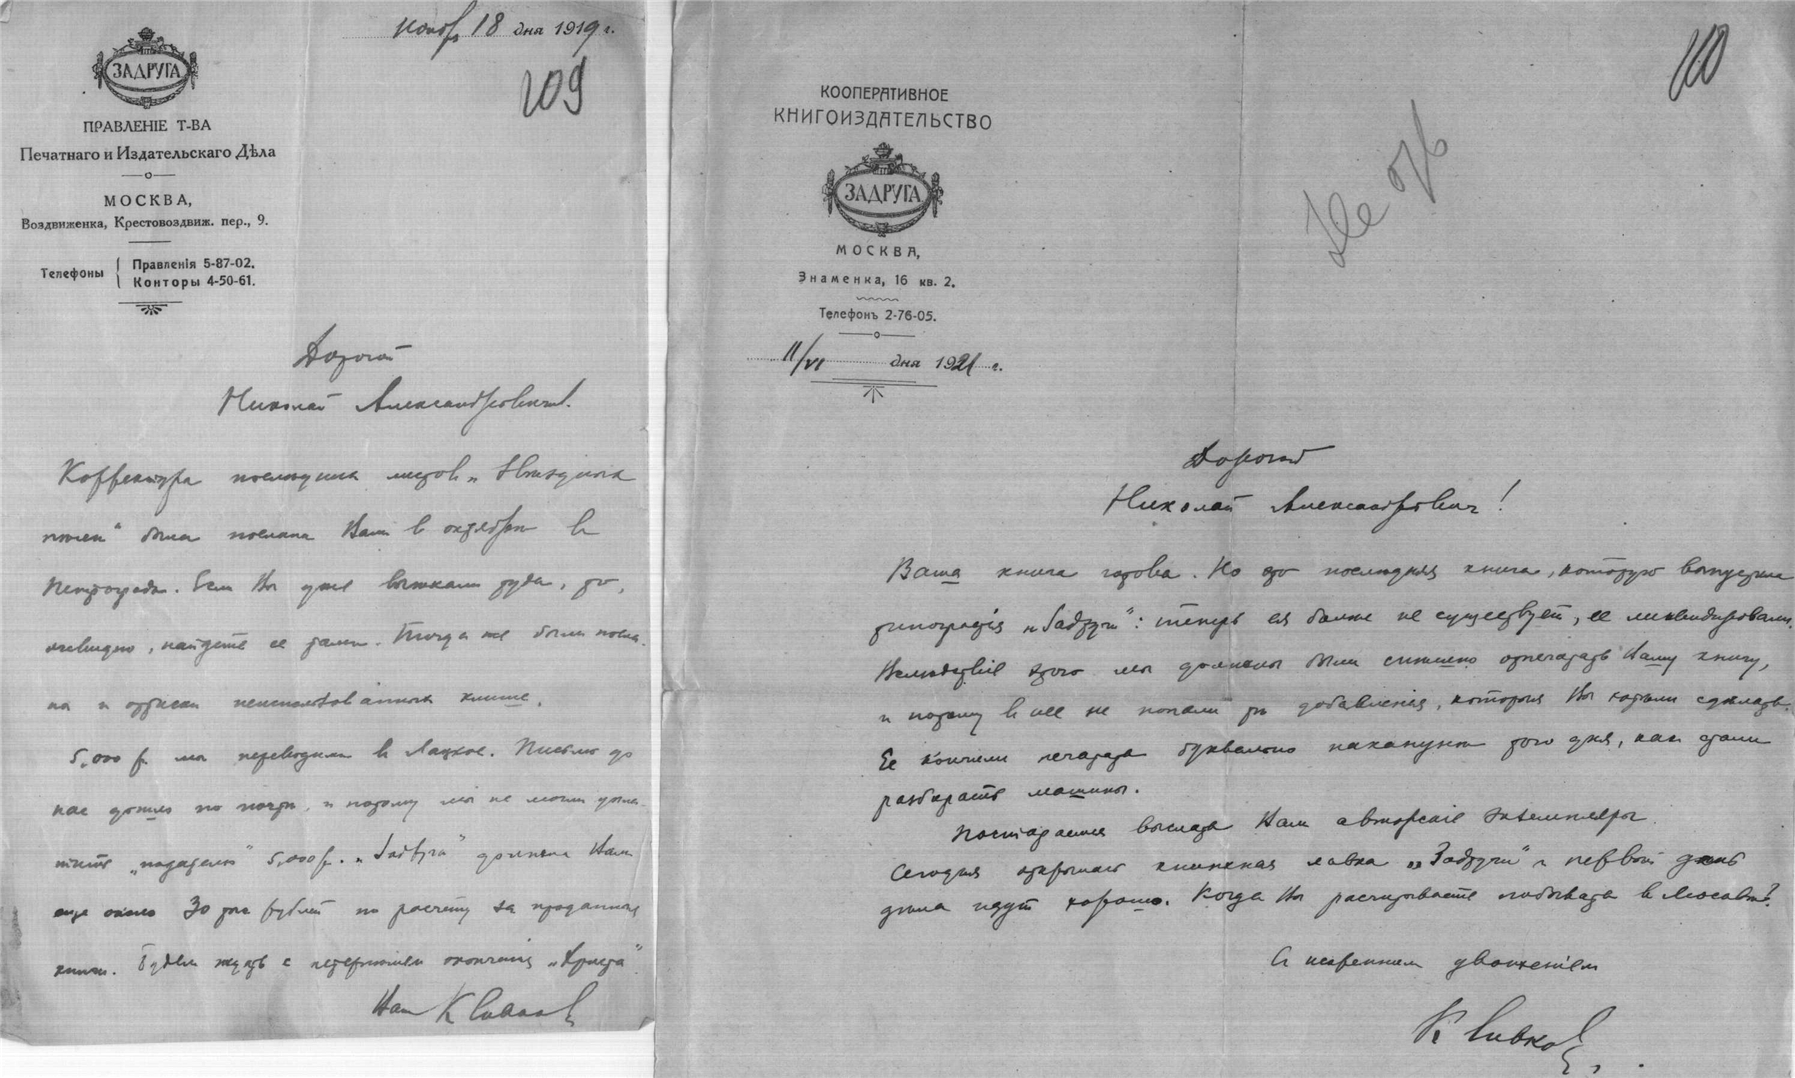 ноябр 18 дня 1919 г.
109
ЗАДРУГА
ПРАВЛЕНІЕ Т-ВА
Печатнаго и Издательскаго Дѣла
МОСКВА,
Воздвиженка, Крестовоздвиж. пер., 9.
Телефоны
Правленія 5-87-02.
Конторы 4-50-61.
Дорогой
Николай Александрович.
Корректура последних листов „Звездных
была послана Вам в октябре в
Петроград. Если Вы уже выехали туда, то,
очевидно, найдете ее там. Тогда же были посла-
ны и оттиски неиспользованных клише.
5.000 р. мы переводим в Лацкое. Письмо до
нас дошло по почте, и потому мы не могли упла-
тить „подателю" 5.000 р. „Задруга" должна Вам
еще около 30 тыс рублей по расчету за проданныя
книги. Будем ждать с нетерпением окончанія „Христа"
Ваш К Сивков
110
Не отв
КООПЕРАТИВНОЕ
КНИГОИЗДАТЕЛЬСТВО
ЗАДРУГА
МОСКВА,
Знаменка, 16 кв. 2.
Телефонъ 2-76-05.
11/VI дня 1921 г.
Дорогой
Николай Александрович!
Ваша книга готова. Но это последняя книга, которую выпустила
типографія „Задруги": теперь ея больше не существует, ее ликвидировали.
Вследствіе этого мы должны были спешно отпечатать Вашу книгу,
и потому в нее не попали те добавления, которыя Вы хотели сделать.
Ее кончили печатать буквально накануне того дня, как стали
разбирать машины.
Постараемся выслать Вам авторскіе экземпляры.
Сегодня открылась книжная лавка „Задруги" и первый день
дела идут хорошо. Когда Вы расчитываете побывать в Москве?
С искренним уважением
К Сивков.